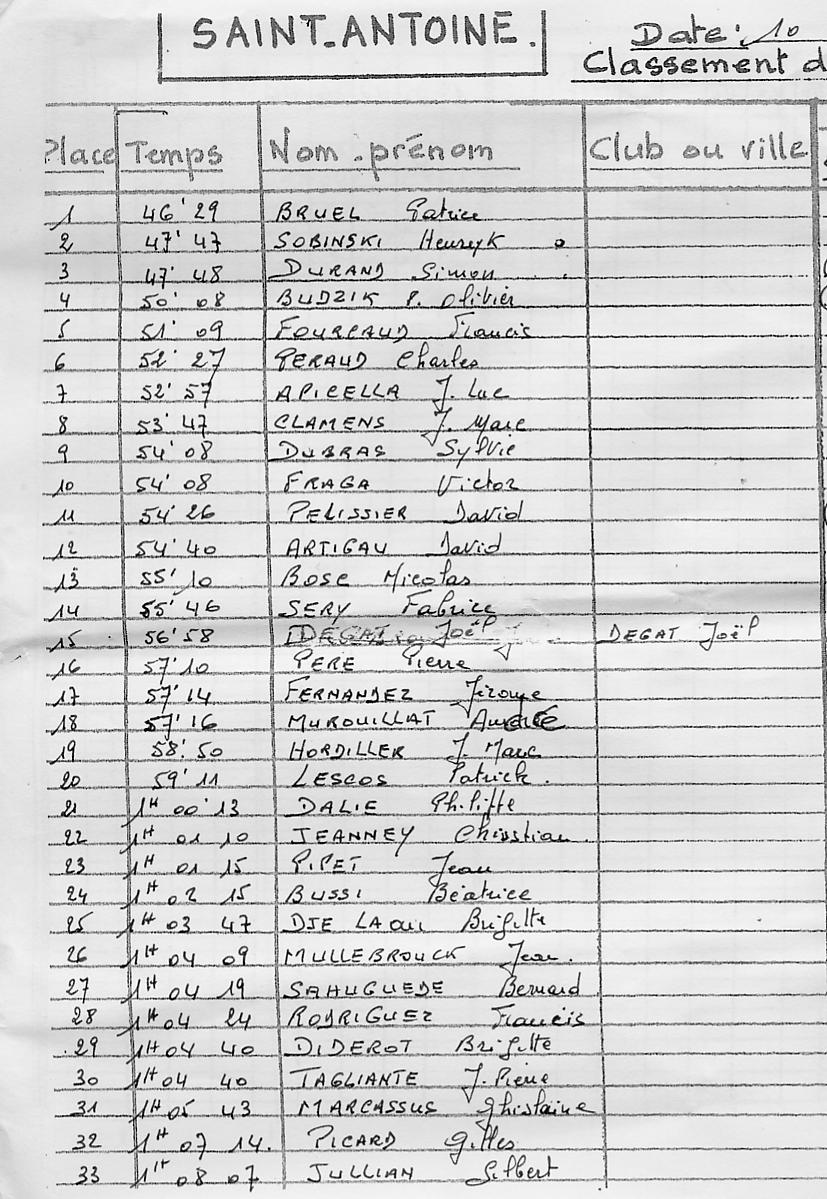 SAINT-ANTOINE.
Date: 10
Classement d
Place Temps Nom-prénom Club ou ville
1 46'29 BRUEL Patrice
2 47'47 SOBINSKI Henryk
3 47'48 DURAND Simon
4 50'08 BUDZIK P. Olivier
5 51'09 FOURCAUD Francis
6 52'27 PERAUD Charles
7 52'57 APICELLA J. Luc
8 53'47 CLAMENS J. Marc
9 54'08 DUBRAS Sylvie
10 54'08 FRAGA Victor
11 54'26 PELISSIER David
12 54'40 ARTIGAU David
13 55'10 BOSC Nicolas
14 55'46 SERY Fabrice
15 56'58 DEGAT Joël DEGAT Joël
16 57'10 PERE Pierre
17 57'14 FERNANDEZ Jérome
18 57'16 MUROUILLAT
19 58'50 HORDILLER J. Marc
20 59'11 LESCOS Patrick.
21 1H 00'13 DALIE Philippe
22 1H 01 10 JEANNEY Christian
23 1H 01 15 PIPET Jean
24 1H 02 15 BUSSI Béatrice
25 1H 03 47 DJE LAOUI Brigitte
26 1H 04 09 MULLEBROUCK Jean.
27 1H 04 19 SAHUGUEDE Bernard
28 1H 04 24 RODRIGUEZ Francis
29 1H 04 40 DIDEROT Brigitte
30 1H 04 40 TAGLIANTE J. Pierre
31 1H 05 43 MARCASSUS Ghislaine
32 1H 07 14. PICARD Gilles
33 1H 08 07 JULLIAN Gilbert